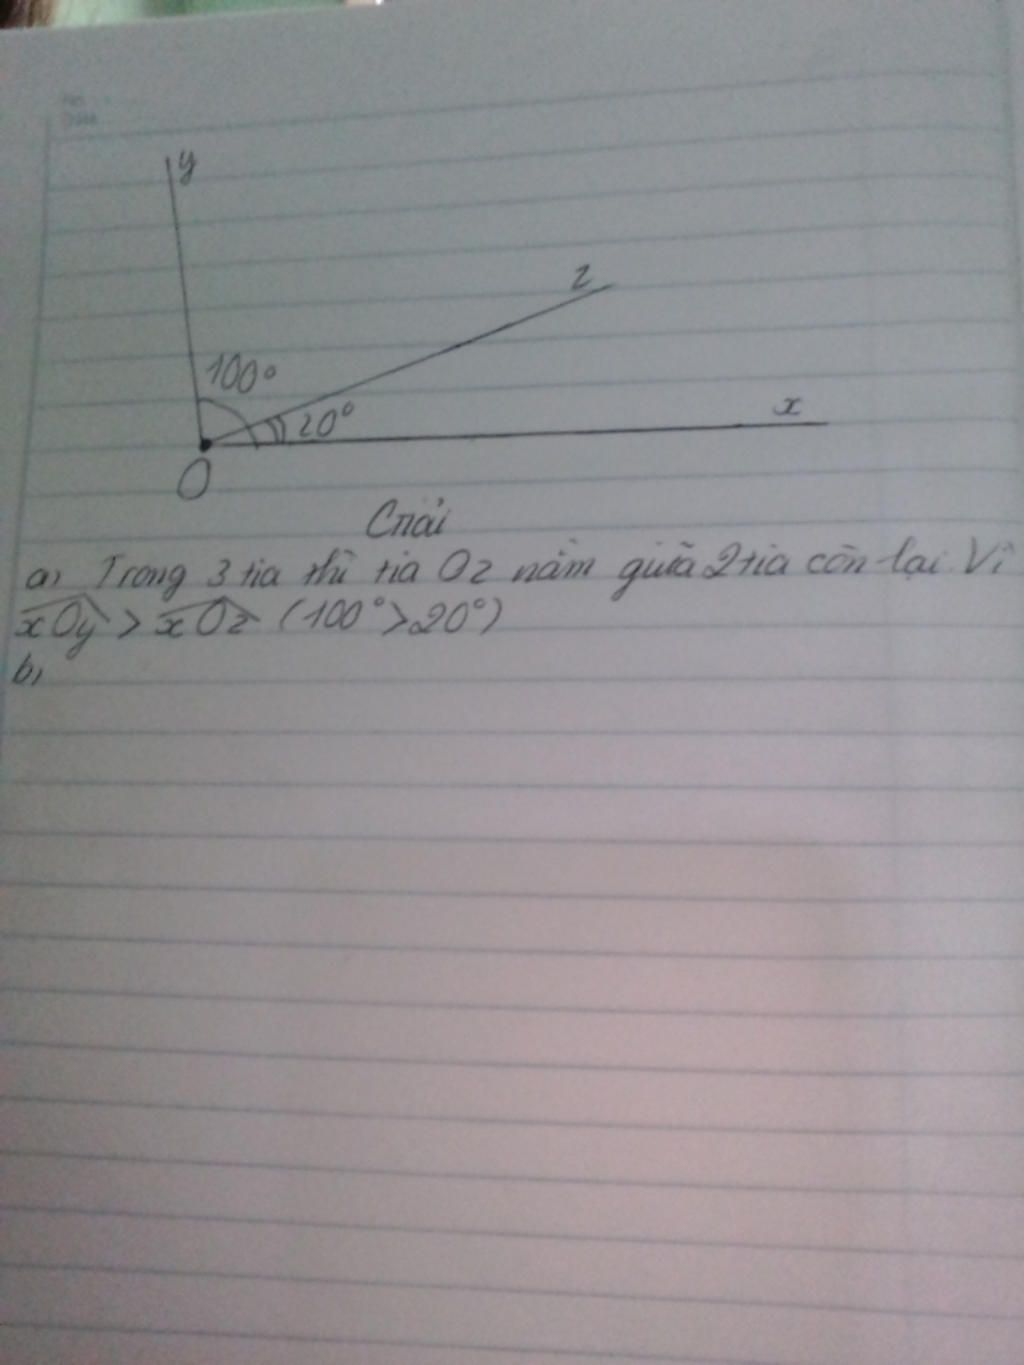 y
z
100°
20°
x
O
Giải
a) Trong 3 tia thì tia Oz nằm giữa 2 tia còn lại. Vì
xOy > xOz (100° > 20°)
b)